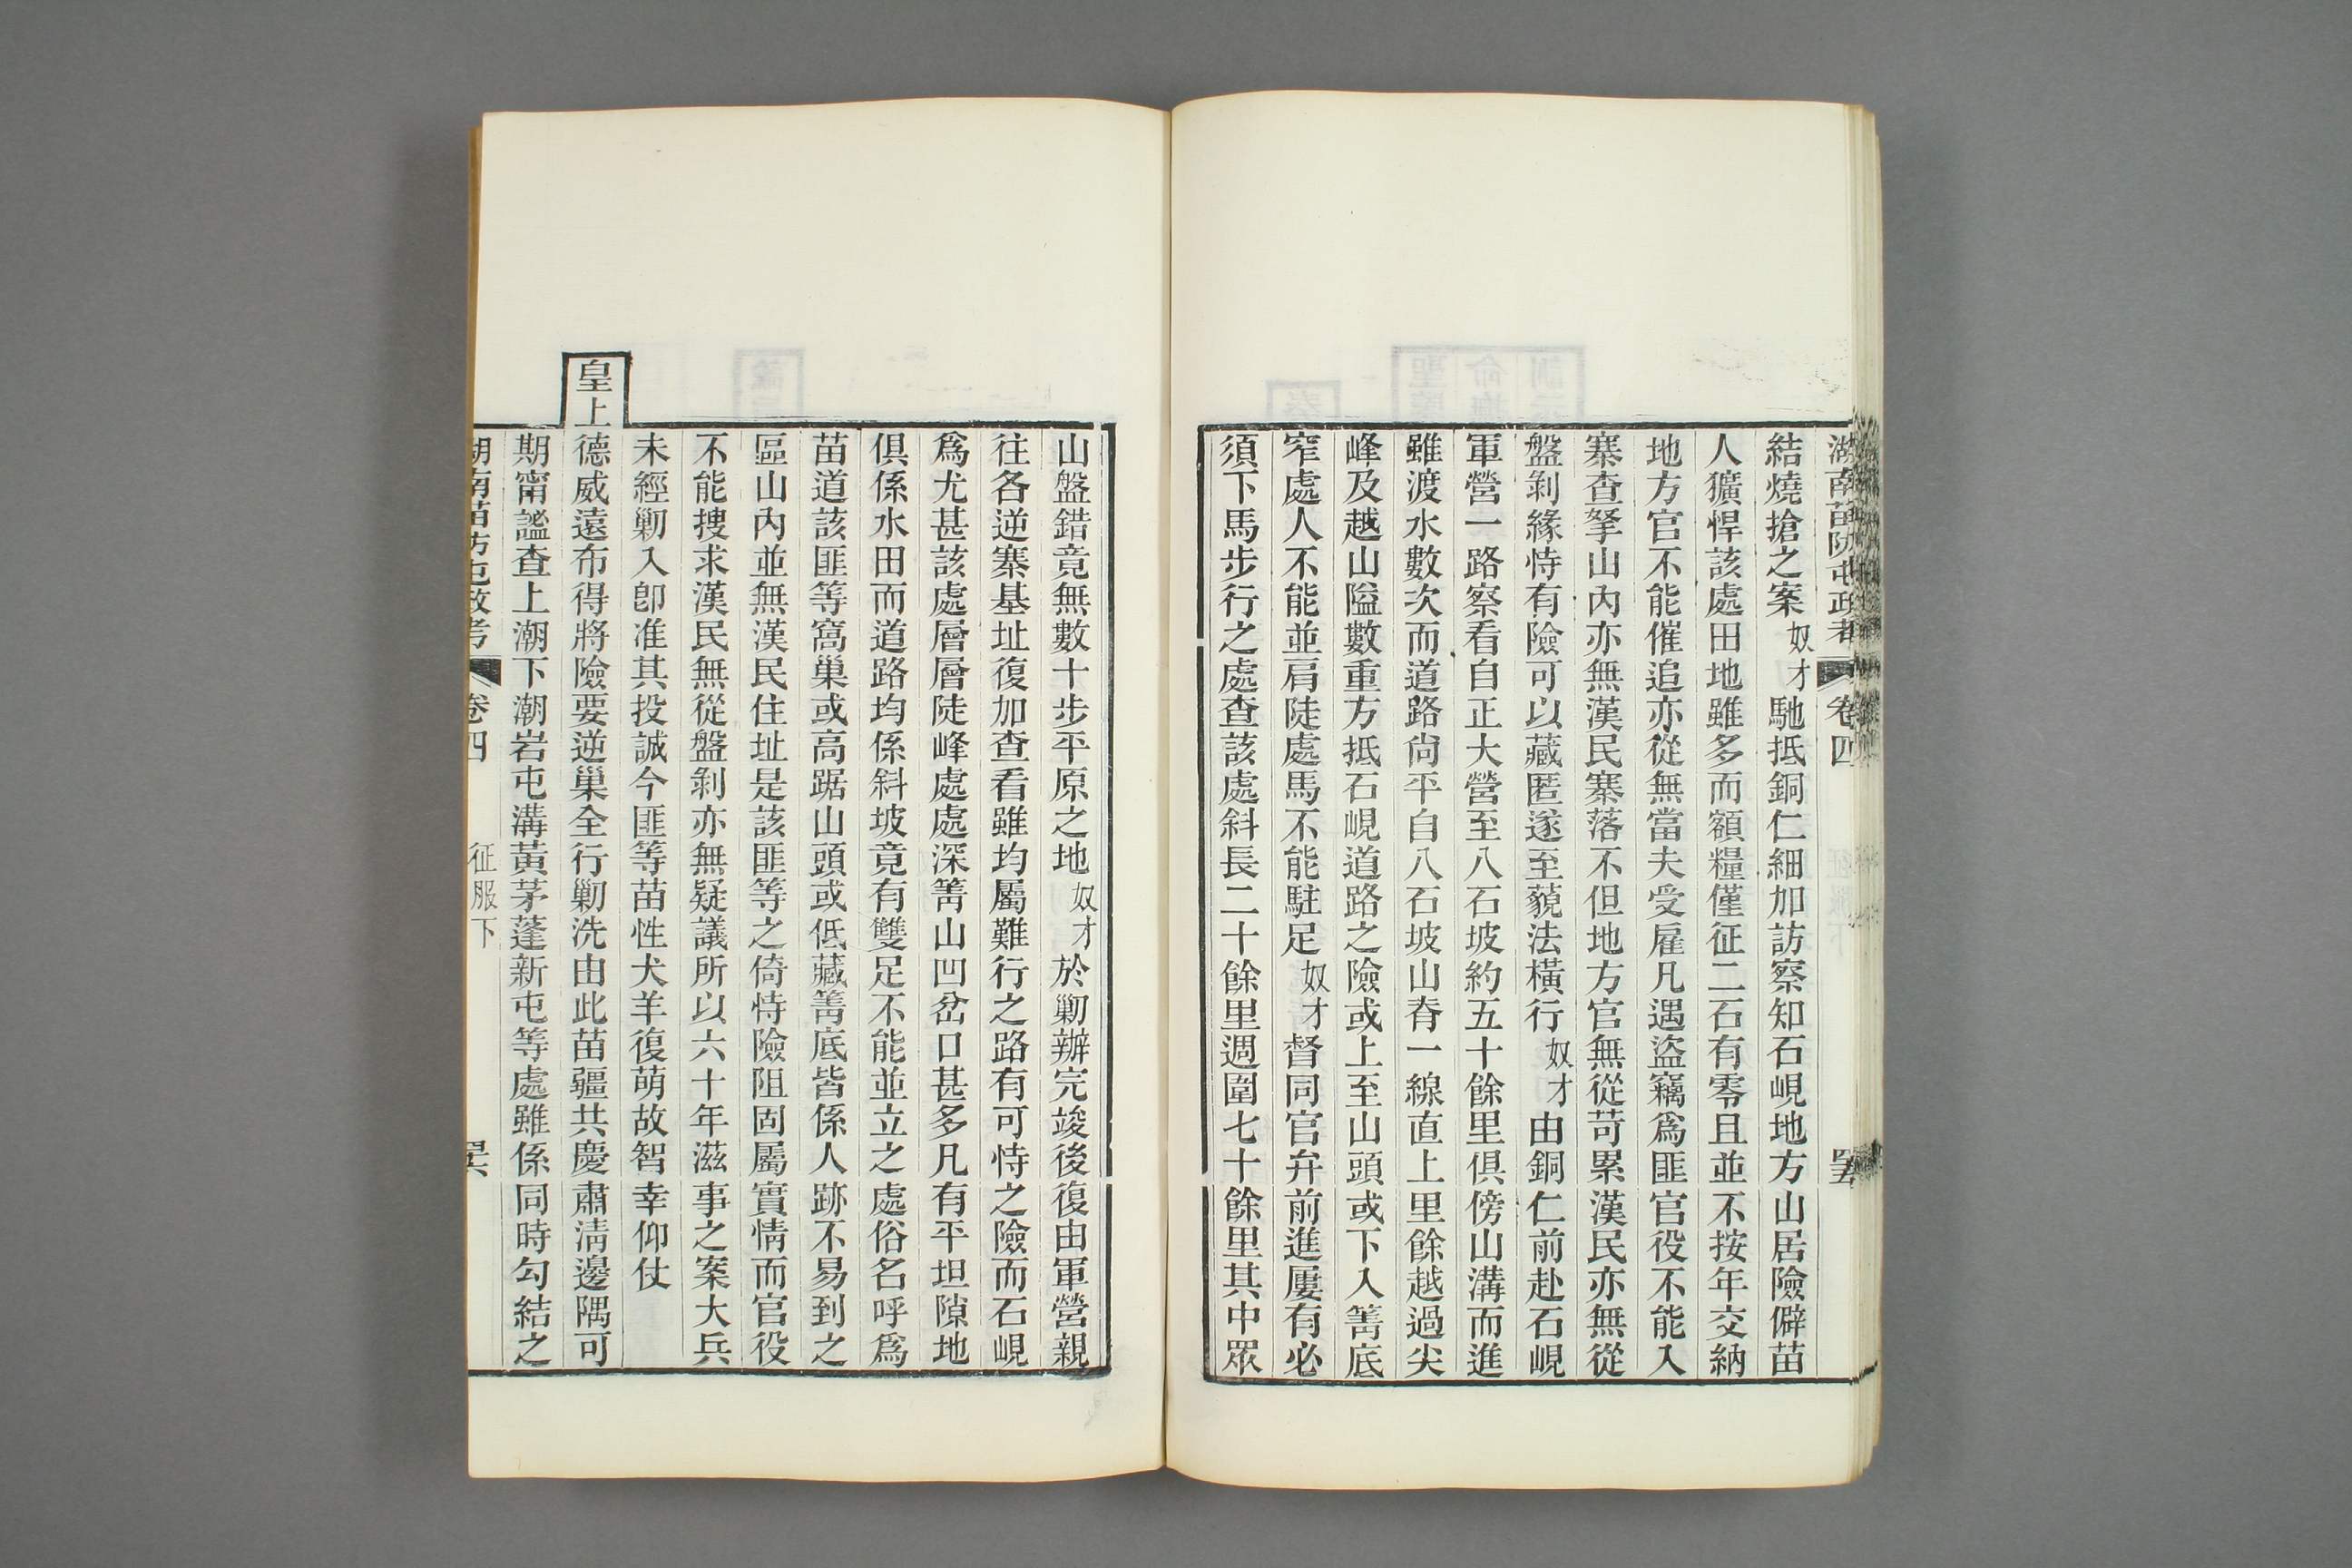 湖南苗防屯政考 卷四 四五
結燒搶之案奴才馳抵銅仁細加訪察知石峴地方山居險僻苗
人獷悍該處田地雖多而額糧僅征二石有零且並不按年交納
地方官不能催追亦從無當夫受雇凡遇盜竊爲匪官役不能入
寨查拏山內亦無漢民寨落不但地方官無從苛累漢民亦無從
盤剝緣恃有險可以藏匿遂至藐法橫行奴才由銅仁前赴石峴
軍營一路察看自正大營至八石坡約五十餘里俱傍山溝而進
雖渡水數次而道路尙平自八石坡山脊一線直上里餘越過尖
峰及越山隘數重方抵石峴道路之險或上至山頭或下入箐底
窄處人不能並肩陡處馬不能駐足奴才督同官弁前進屢有必
須下馬步行之處查該處斜長二十餘里週圍七十餘里其中眾
山盤錯竟無數十步平原之地奴才於剿辦完竣後復由軍營親
往各逆寨基址復加查看雖均屬難行之路有可恃之險而石峴
爲尤甚該處層層陡峰處處深箐山凹岔口甚多凡有平坦隙地
俱係水田而道路均係斜坡竟有雙足不能並立之處俗名呼爲
苗道該匪等窩巢或高踞山頭或低藏箐底皆係人跡不易到之
區山內並無漢民住址是該匪等之倚恃險阻固屬實情而官役
不能搜求漢民無從盤剝亦無疑議所以六十年滋事之案大兵
未經剿入卽准其投誠今匪等苗性犬羊復萌故智幸仰仗
皇上德威遠布得將險要逆巢全行剿洗由此苗疆共慶肅淸邊隅可
期甯謐查上潮下潮岩屯溝黃茅蓬新屯等處雖係同時勾結之
湖南苗防屯政考 卷四 征服下 四六